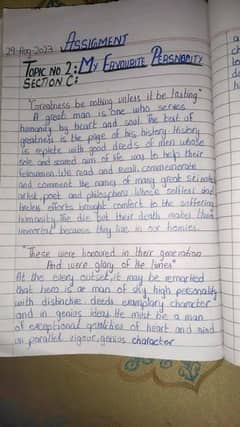 29-Aug-2023 ASSIGMENT
TOPIC NO 2: MY FAVOURITE PERSNALITY
SECTION C:
"Greatness be nothing unless it be lasting"
A great man is one who serves
humanity by heart and soul. The test of
greatness is the page of his history. History
is replete with good deeds of men whose
sole and sacred aim of life was to help their
fellowmen. We read and recall, commemorate
and comment the names of many great
artist, poet and philosophers whose selfless and
tireless efforts brought comfort to the suffering
humanity. The die but their death makes them
immortal because they live in our
"These were honoured in their generation
And were glory of the times"
At the every outset, it may be remarked
that hero is ar man of sky high personality
with distinctive deeds exemplary character
and in genius ideas. He must be a man
of exceptional qualities of heart and mind
un parallel vigour, genius character